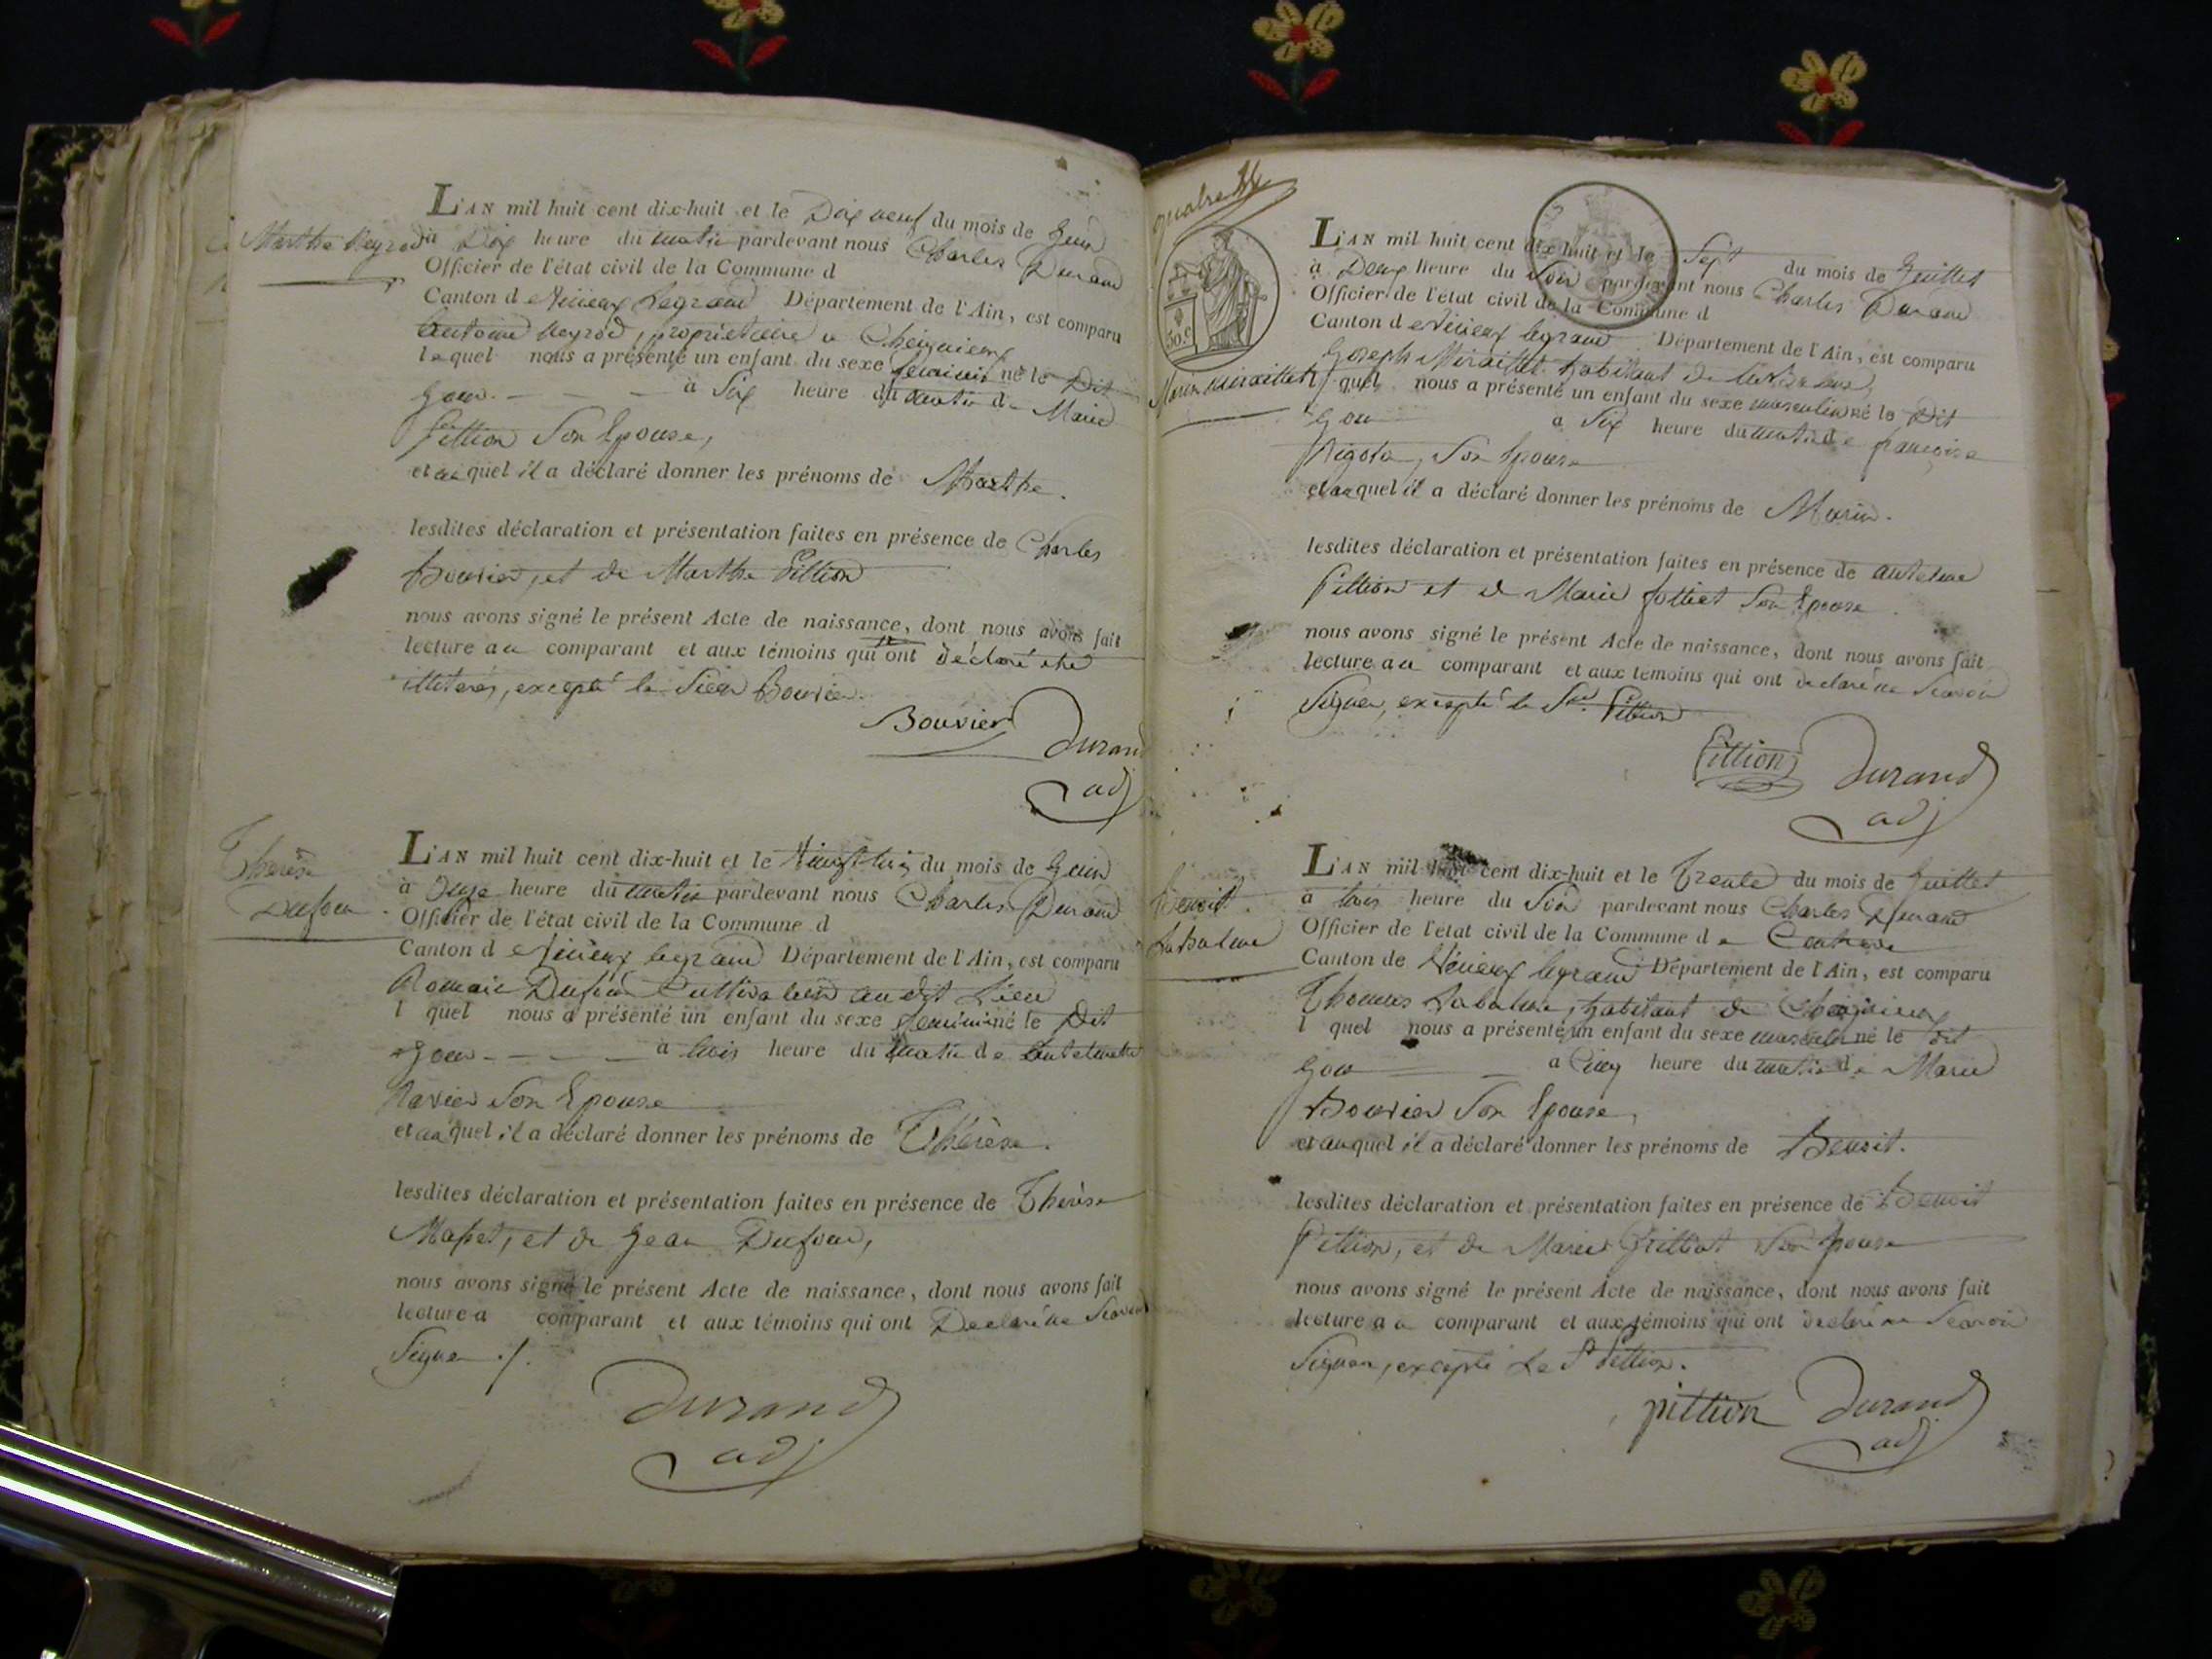 Marthe Neyrod
L'AN mil huit cent dix-huit et le Dix neuf du mois de Juin
à Dix heure du matin pardevant nous Charles Durand
Officier de l'état civil de la Commune d
Canton de Virieux legrand Département de l'Ain, est comparu
Antoine Neyrod, propriétaire a Cheignieux
lequel nous a présenté un enfant du sexe feminin né le Dit
Jour à Six heure du matin de Marie
Pittion Son Epouse,
et auquel il a déclaré donner les prénoms de Marthe.
lesdites déclaration et présentation faites en présence de Charles
Bouvier, et de Marthe Pittion
nous avons signé le présent Acte de naissance, dont nous avons fait
lecture au comparant et aux témoins qui ont déclaré etre
illiterés, excepté le Sieur Bouvier.
Bouvier Durand
adj
Therèse
Dufour
L'AN mil huit cent dix-huit et le du mois de Juin
à Onze heure du matin pardevant nous Charles Durand
Officier de l'état civil de la Commune d
Canton de Virieux legrand Département de l'Ain, est comparu
Romain Dufour Cultivateur audit Lieu
l quel nous a présenté un enfant du sexe feminin né le Dit
Jour à trois heure du matin de Antelmette
Navier Son Epouse
et auquel il a déclaré donner les prénoms de Thérèse.
lesdites déclaration et présentation faites en présence de Thérèse
et de Jean Dufour,
nous avons signé le présent Acte de naissance, dont nous avons fait
lecture a comparant et aux témoins qui ont Declaré ne Scavoir
Signer ./.
Durand
adj
quatre
50.c
Marin Miraillet
L'AN mil huit cent dix-huit et le Sept du mois de Juillet
à Deux heure du Soir pardevant nous Charles Durand
Officier de l'état civil de la Commune d
Canton de Virieux legrand Département de l'Ain, est comparu
Joseph Miraillet habitant de
l quel nous a présenté un enfant du sexe masculin né le Dit
Jour à Six heure du matin de françoise
Rigota, Son Epouse
et auquel il a déclaré donner les prénoms de Marin.
lesdites déclaration et présentation faites en présence de antelme
Pittion et de Marie Son Epouse
nous avons signé le présent Acte de naissance, dont nous avons fait
lecture au comparant et aux témoins qui ont declaré ne Scavoir
Signer, excepté le Sr. Pittion
Pittion Durand
adj
Benoit
Labalme
L'AN mil huit cent dix-huit et le Trente du mois de Juillet
à trois heure du Soir pardevant nous Charles Durand
Officier de l'état civil de la Commune de
Canton de Virieux legrand Département de l'Ain, est comparu
Thomas Labalme, habitant de Cheignieux
l quel nous a présenté un enfant du sexe masculin né le Dit
Jour à Cinq heure du matin de Marie
Bouvier Son Epouse,
et auquel il a déclaré donner les prénoms de Benoit.
lesdites déclaration et présentation faites en présence de Benoit
Pittion, et de Marie Son Epouse
nous avons signé le présent Acte de naissance, dont nous avons fait
lecture au comparant et aux témoins qui ont declaré ne Scavoir
Signer, excepté Le Sr Pittion.
pittion Durand
adj